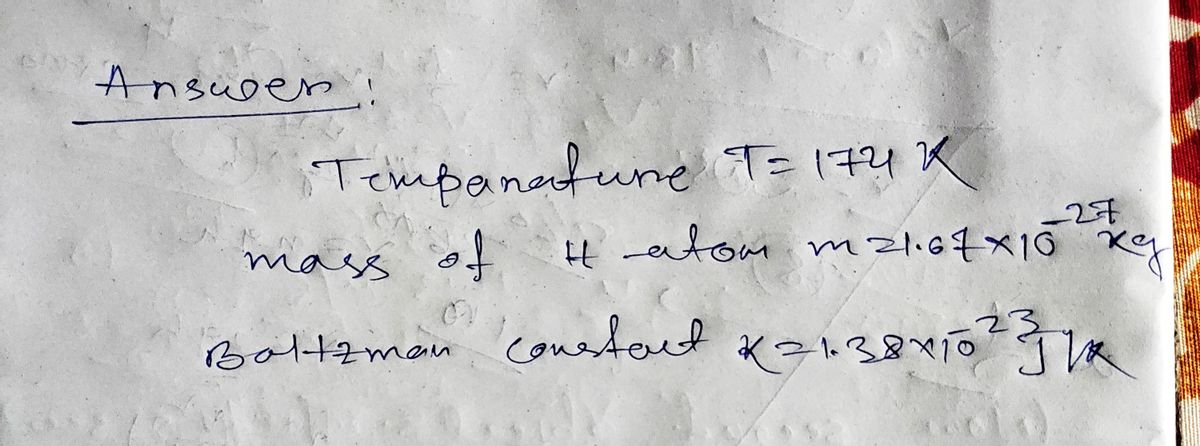 Answer :
Temperature T = 174 K
mass of H-atom m = 1.67 × 10⁻²⁷ kg
Boltzman constant K = 1.38 × 10⁻²³ J/K